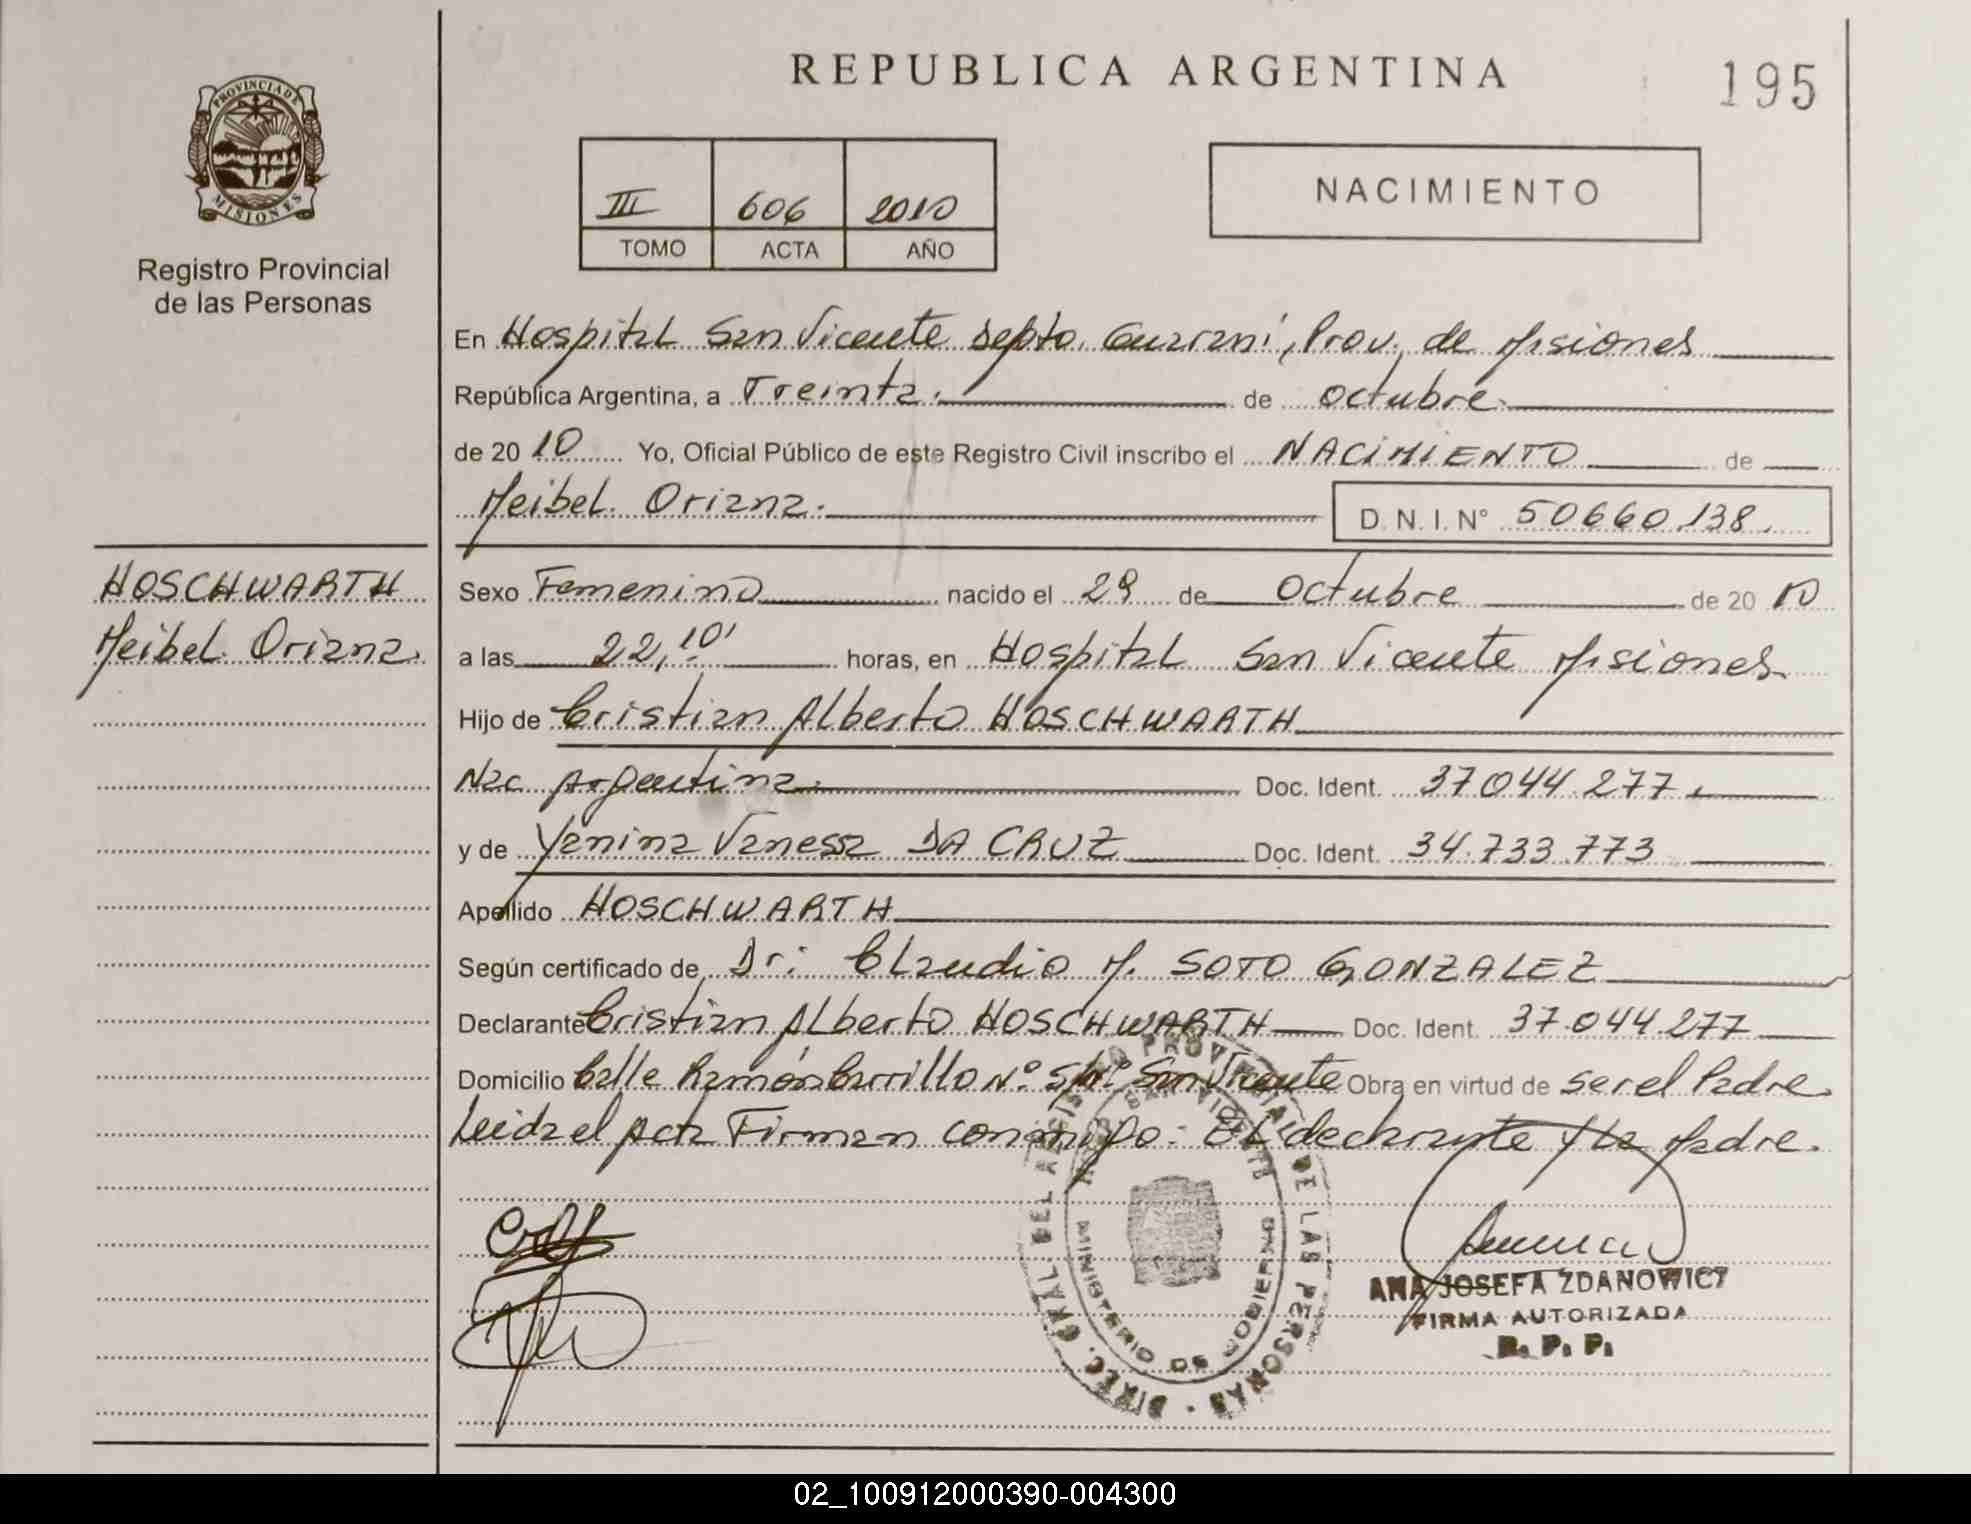 REPUBLICA ARGENTINA
195
PROVINCIA DE
MISIONES
Registro Provincial
de las Personas
III 606 2010
TOMO ACTA AÑO
NACIMIENTO
En Hospital San Vicente Depto. Guaraní, Prov. de Misiones
República Argentina, a Treinta. de octubre.
de 20 10 Yo, Oficial Público de este Registro Civil inscribo el NACIMIENTO de
Meibel Oriana. D. N. I. N° 50660.138.
HOSCHWARTH
Meibel Oriana.
Sexo Femenino nacido el 29 de Octubre de 20 10
a las 22,10' horas, en Hospital San Vicente Misiones.
Hijo de Cristian Alberto HOSCHWARTH
Nac. Argentina. Doc. Ident. 37.044.277.
y de Yanina Vanessa DA CRUZ Doc. Ident. 34.733.773
Apellido HOSCHWARTH
Según certificado de Dr: Claudio M. SOTO GONZALEZ
Declarante Cristian Alberto HOSCHWARTH Doc. Ident. 37.044.277
Domicilio Calle Ramón Carrillo N° S/N° San Vicente Obra en virtud de ser el Padre.
Leida el Acta Firman conmigo: El declarante y La Madre.
DIREC. GRAL. DEL REGISTRO PROVINCIAL DE LAS PERSONAS
MINISTERIO DE GOBIERNO
ANA JOSEFA ZDANOWICZ
FIRMA AUTORIZADA
R. P. P.
02_100912000390-004300